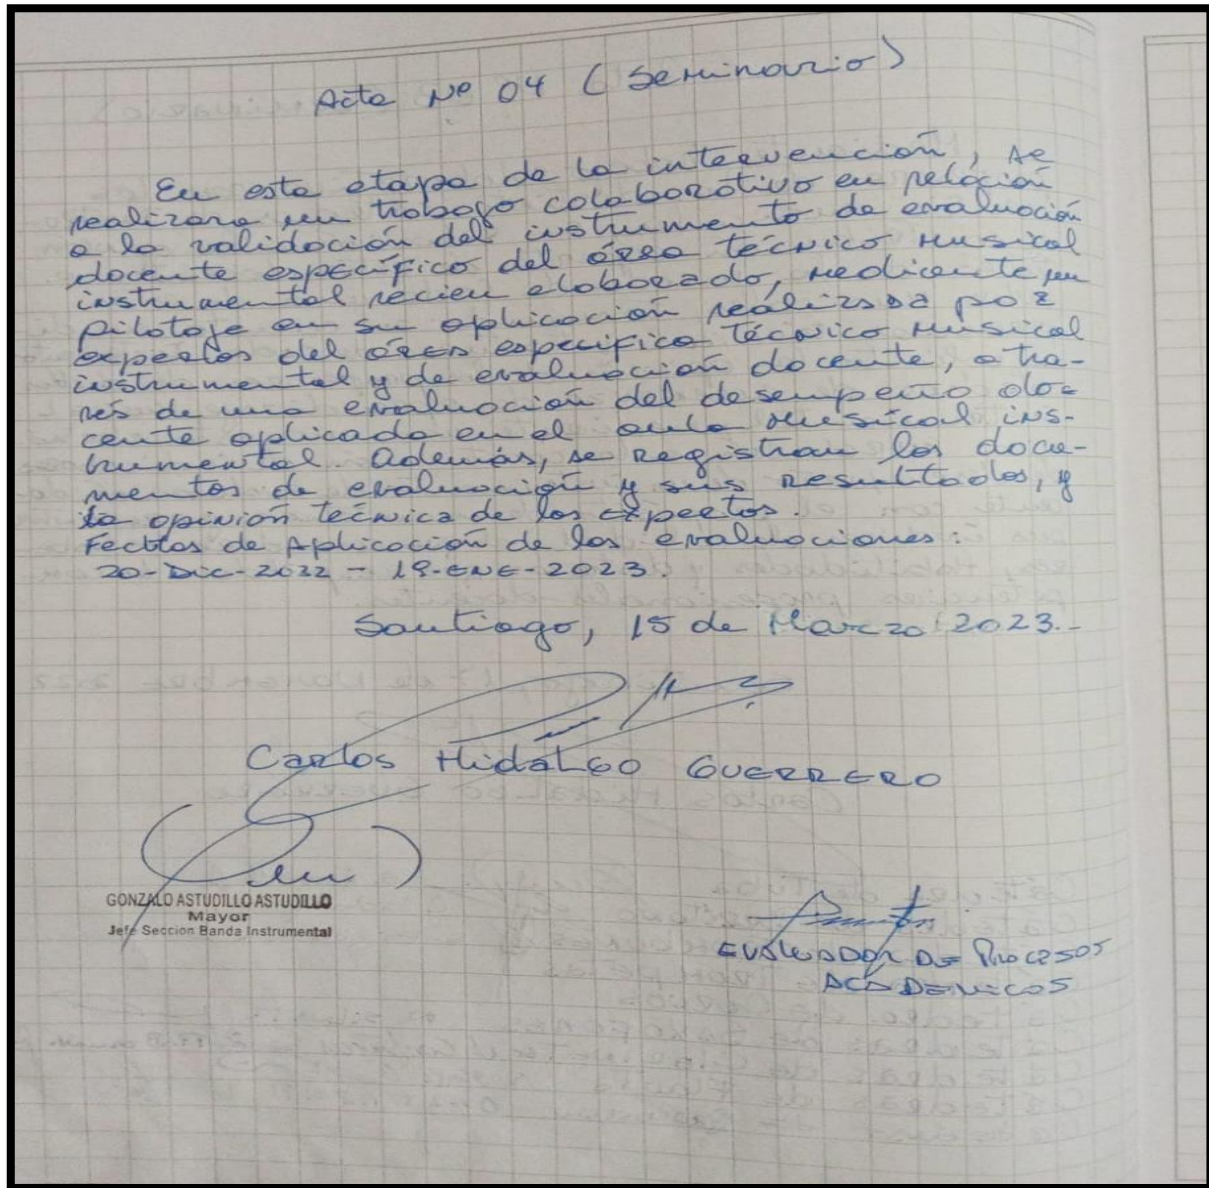 Acta Nº 04 (Seminario)
En esta etapa de la intervención, se
realizara un trabajo colaborativo en relación
a la validación del instrumento de evaluación
docente específico del área técnico musical
instrumental recien elaborado, mediante un
pilotaje en su aplicación realizada por
expertos del área especifica técnico musical
instrumental y de evaluación docente, a tra-
vés de una evaluación del desempeño do-
cente aplicada en el aula musical ins-
trumental. Además, se registran los docu-
mentos de evaluación y sus resultados, y
la opinión técnica de los expertos.
Fechas de Aplicación de las evaluaciones:
20-Dic-2022 - 19-ENE-2023.
Santiago, 15 de Marzo 2023.-
Carlos Hidalgo GUERRERO
GONZALO ASTUDILLO ASTUDILLO
Mayor
Jefe Seccion Banda Instrumental
EVALUADOR DE PROCESOS
ACADEMICOS